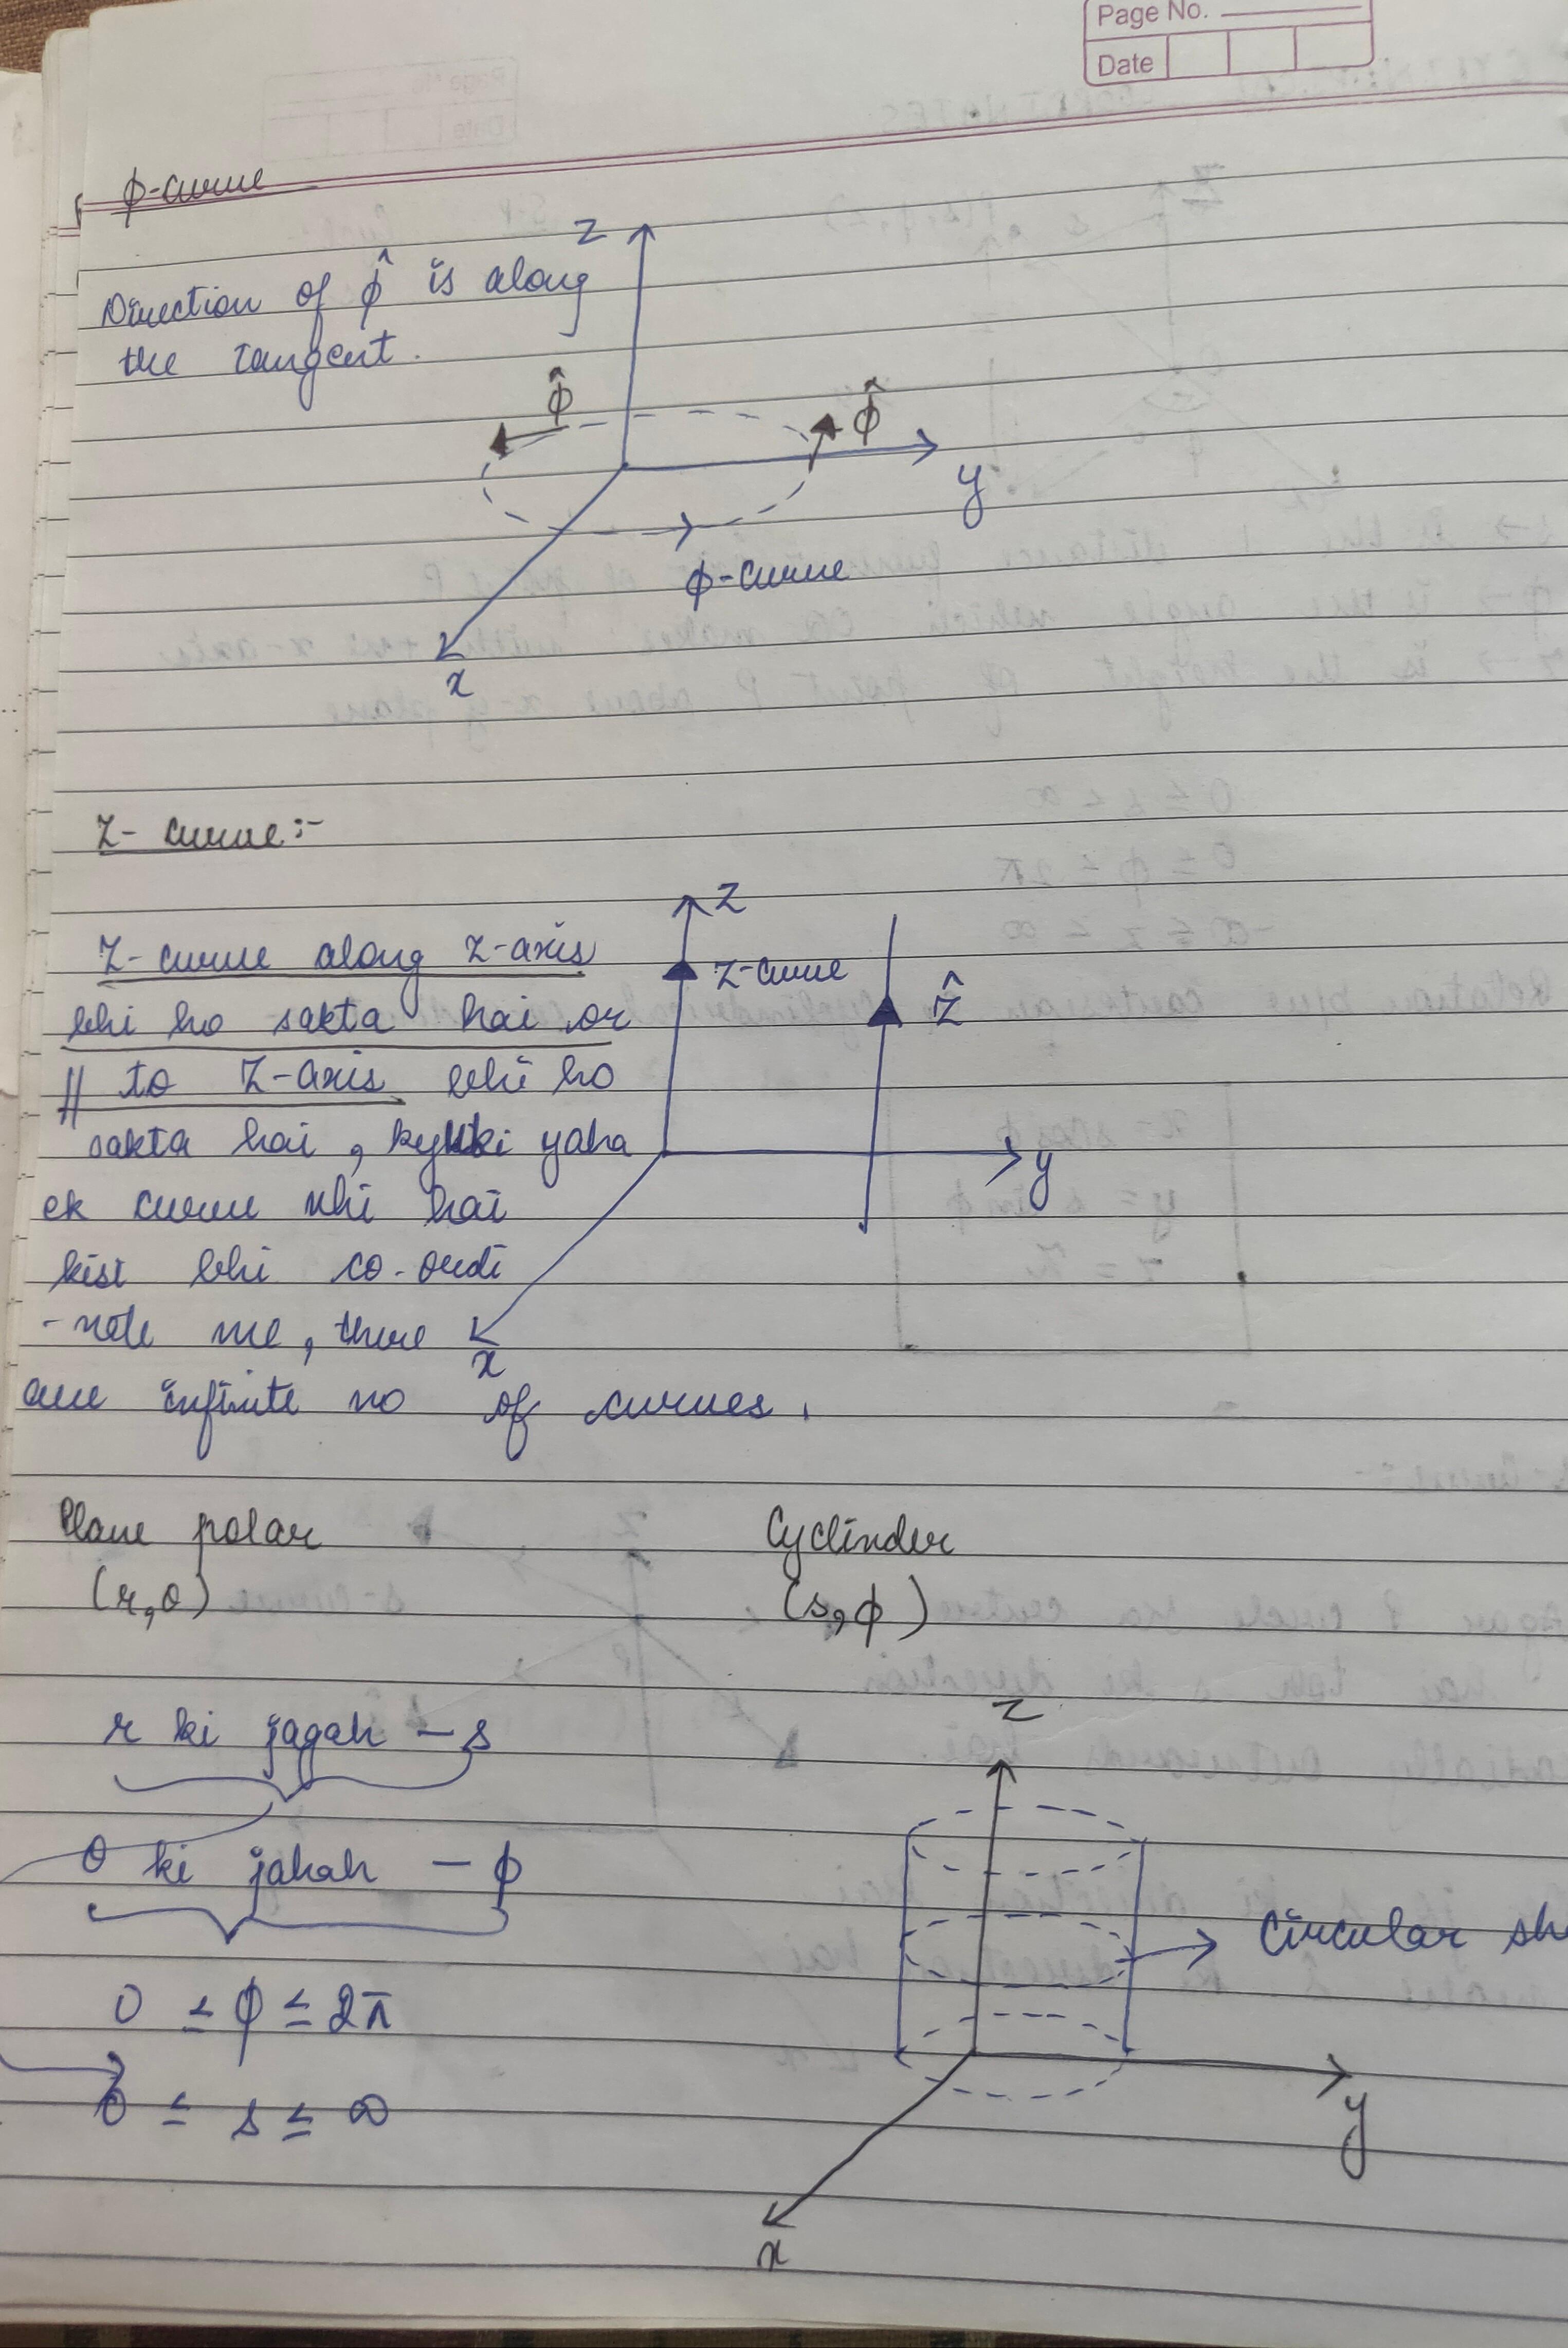 Page No.
Date
ϕ-curve
Direction of ϕ̂ is along
the tangent.
z
ϕ̂
ϕ̂
y
ϕ-curve
x
Z- curve:-
z
Z-curve along z-axis
Z-curve
bhi ho sakta hai or
ẑ
// to Z-axis bhi ho
sakta hai, kyuki yaha
y
ek curve nhi hai
kisi bhi co-ordi
-nate me, there
x
are infinite no of curves.
Plane polar
Cyclinder
(r,θ)
(s,ϕ)
r ki jagah - s
z
θ ki jahah - ϕ
Circular sh
0 ≤ ϕ ≤ 2π
0 ≤ s ≤ ∞
y
x